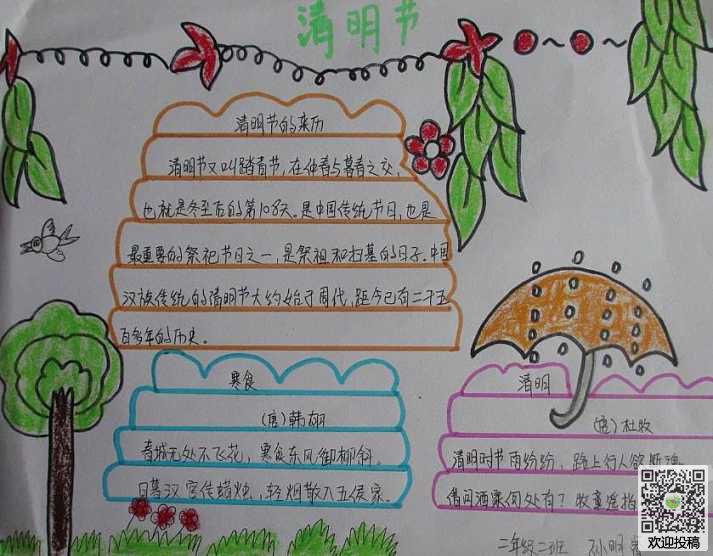 清明节
清明节的来历
清明节又叫踏青节,在仲春与暮春之交,
也就是冬至后的第108天。是中国传统节日,也是
最重要的祭祀节日之一,是祭祖和扫墓的日子。中国
汉族传统的清明节大约始于周代,距今已有二千五
百多年的历史。
寒食
(唐)韩翃
春城无处不飞花,寒食东风御柳斜。
日暮汉宫传蜡烛,轻烟散入五侯家。
清明
(唐)杜牧
清明时节雨纷纷,路上行人欲断魂
借问酒家何处有?牧童遥指
二年级二班 孙明
欢迎投稿